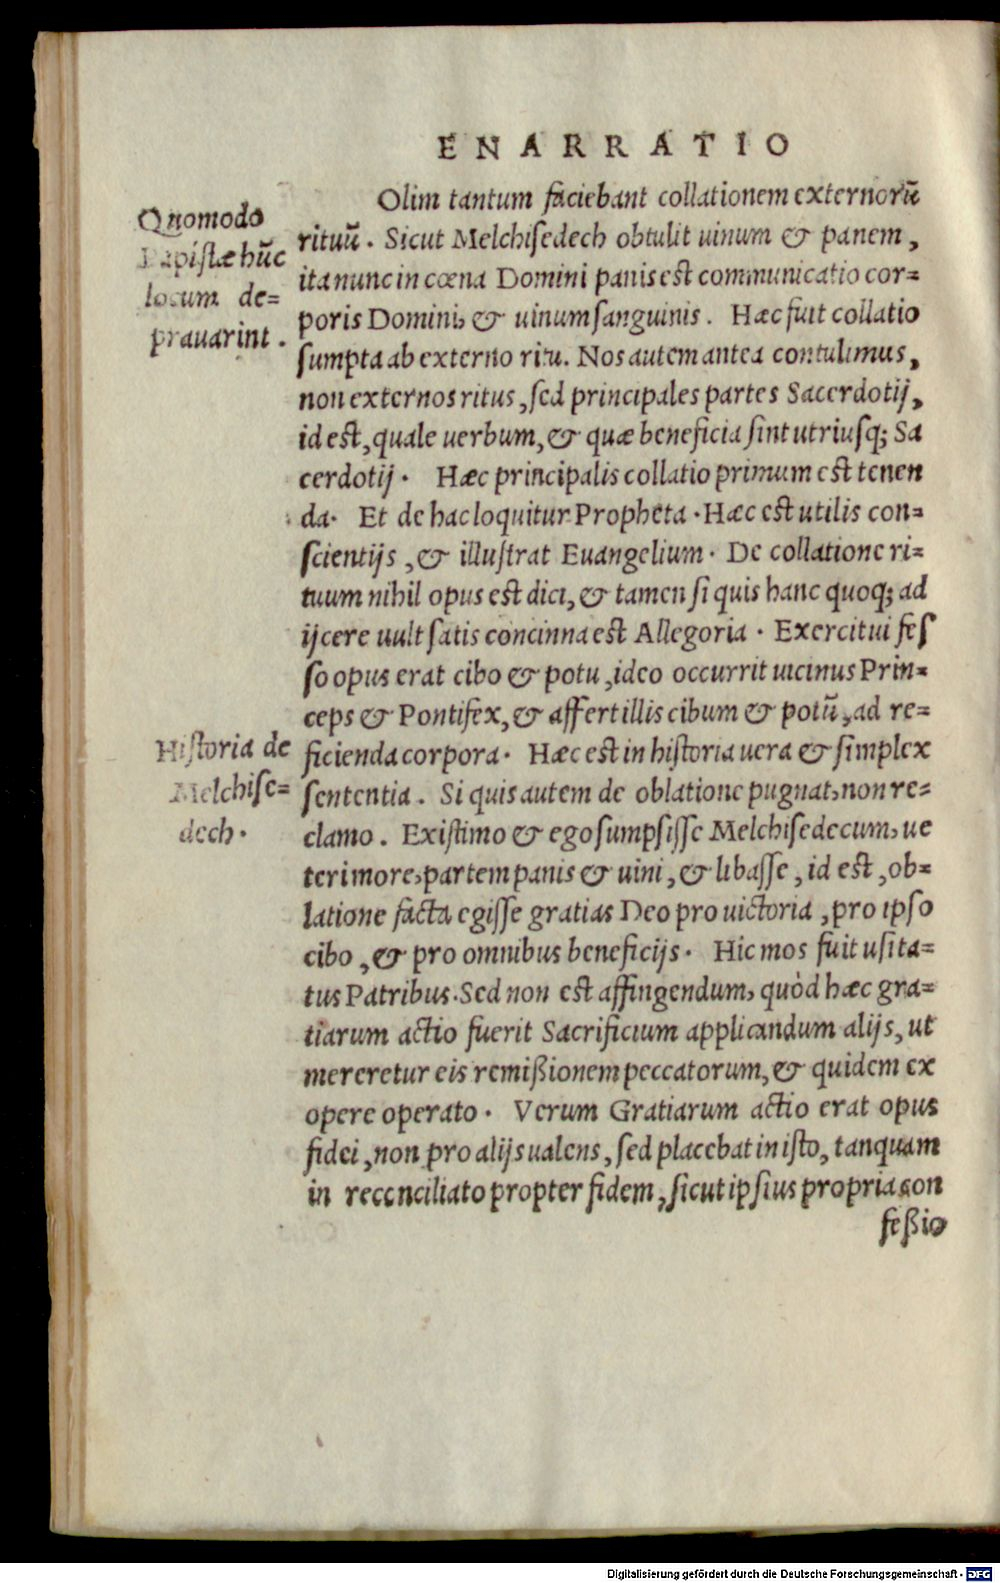 ENARRATIO
Quomodo
Papistæ hūc
locum de=
prauarint.
Olim tantum faciebant collationem externorū
rituū. Sicut Melchiſedech obtulit uinum & panem,
ita nunc in cœna Domini panis est communicatio cor=
poris Domini, & uinum ſanguinis. Hæc fuit collatio
ſumpta ab externo ritu. Nos autem antea contulimus,
non externos ritus, ſed principales partes Sacerdotij,
id est, quale uerbum, & quæ beneficia ſint utriuſq; Sa
cerdotij. Hæc principalis collatio primum est tenen
da. Et de hac loquitur Propheta. Hæc est utilis con=
ſcientijs, & illuſtrat Euangelium. De collatione ri=
tuum nihil opus est dici, & tamen ſi quis hanc quoq; ad
ijcere uult ſatis concinna est Allegoria. Exercitui feſ
ſo opus erat cibo & potu, ideo occurrit uicinus Prin=
ceps & Pontifex, & affert illis cibum & potū, ad re=
Hiſtoria de
Melchiſe=
dech.
ficienda corpora. Hæc est in hiſtoria uera & ſimplex
ſententia. Si quis autem de oblatione pugnat, non re=
clamo. Exiſtimo & ego ſumpſiſſe Melchiſedecum, ue
teri more, partem panis & uini, & libaſſe, id est, ob=
latione facta egiſſe gratias Deo pro uictoria, pro ipſo
cibo, & pro omnibus beneficijs. Hic mos fuit uſita=
tus Patribus. Sed non est affingendum, quòd hæc gra=
tiarum actio fuerit Sacrificium applicandum alijs, ut
mereretur eis remißionem peccatorum, & quidem ex
opere operato. Verum Gratiarum actio erat opus
fidei, non pro alijs ualens, ſed placebat in iſto, tanquam
in reconciliato propter fidem, ſicut ipſius propria con
feßio
Digitalisierung gefördert durch die Deutsche Forschungsgemeinschaft - DFG